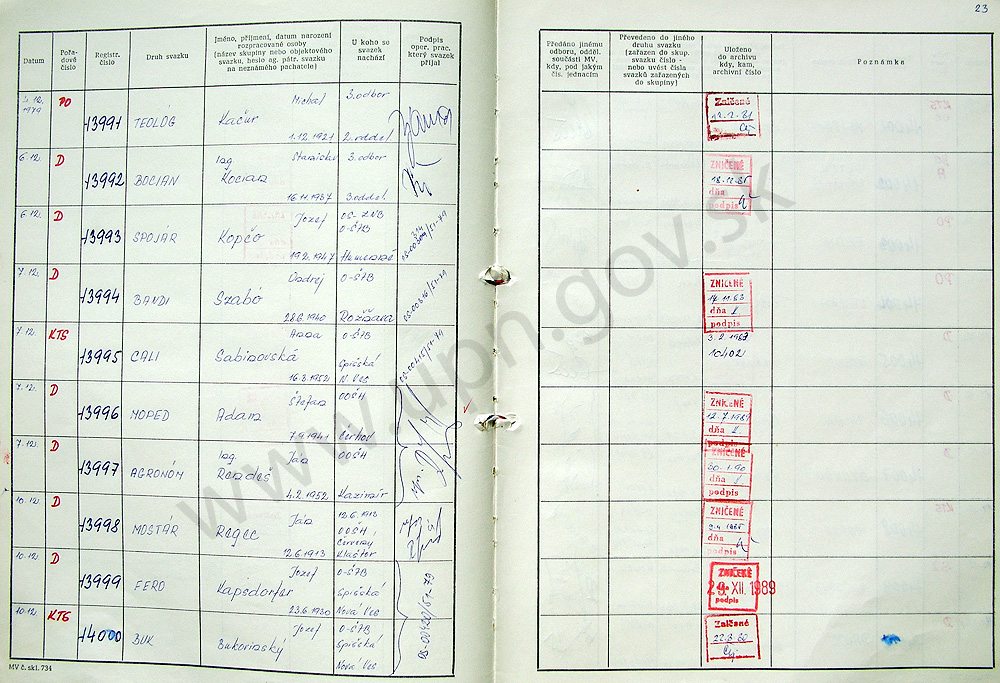 23
Datum
Pořadové číslo
Registr. číslo
Druh svazku
Jméno, příjmení, datum narození rozpracované osoby (název skupiny nebo objektového svazku, heslo ag. pátr. svazku na neznámého pachatele)
U koho se svazek nachází
Podpis oper. prac. který svazek přijal
Předáno jinému odboru, odděl. součásti MV, kdy, pod jakým čís. jednacím
Převedeno do jiného druhu svazku (zařazen do skup. svazku číslo - nebo uvést čísla svazků zařazených do skupiny)
Uloženo do archivu kdy, kam, archivní číslo
Poznámka
12. 1979 PO 13991 TEOLÓG Michal Kačur 1.12.1921 3. odbor 2. oddel.
Zničené
6.12. D 13992 BOCIAN Ing. Stanislav Kocian 16.11.1937 3. odbor 3. oddel.
ZNIČENÉ 18.12.85 dňa podpis
6.12. D 13993 SPOJÁR Jozef Kopčo 19.2.1947 OS-ZNB O-ŠTB Humenné
7.12. D 13994 BANDI Ondrej Szabó 28.6.1960 O-ŠTB Rožňava
ZNIČENÉ 14.11.83 dňa podpis
7.12. KTS 13995 CALI Anna Sabinovská 16.3.1952 O-ŠTB Spišská N. Ves
3.2.1983
10402
7.12. D 13996 MOPED Štefan Adam 7.9.1941 OOŠH Čerhov
ZNIČENÉ 12.7.1984 dňa podpis
7.12. D 13997 AGRONÓM Ing. Ján Rendeš 4.2.1952 OOŠH Kazimír
ZNIČENÉ 30.1.90 dňa podpis
10.12. D 13998 MOSTÁR Ján Regec 12.6.1913 12.6.1913 OOŠH Červený Kláštor
ZNIČENÉ dňa podpis
10.12. D 13999 FERO Jozef Kapsdorfer 23.6.1930 O-ŠTB Spišská Nová Ves 05-00420/51-79
ZNIČENÉ 29. XII. 1989 podpis
10.12. KTS 14000 BUK Jozef Bukovinský O-ŠTB Spišská Nová Ves
Zničené
MV č. skl. 734
www.upn.gov.sk